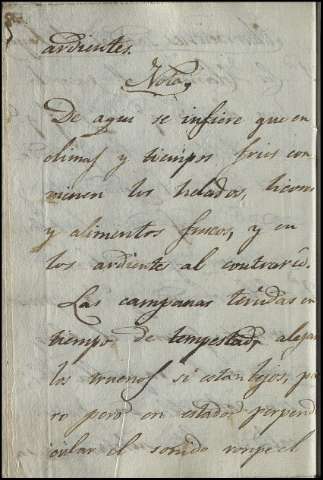 ardientes.
Nota,
De aqui se infiere que en
climas y tiempos frios con
vienen los helados, licores
y alimentos frescos, y en
los ardientes al contrario.
Las campanas tañidas en
tiempo de tempestad, alejan
los truenos si estan lejos, pe
ro pero en estado perpend
icular el sonido rompe el